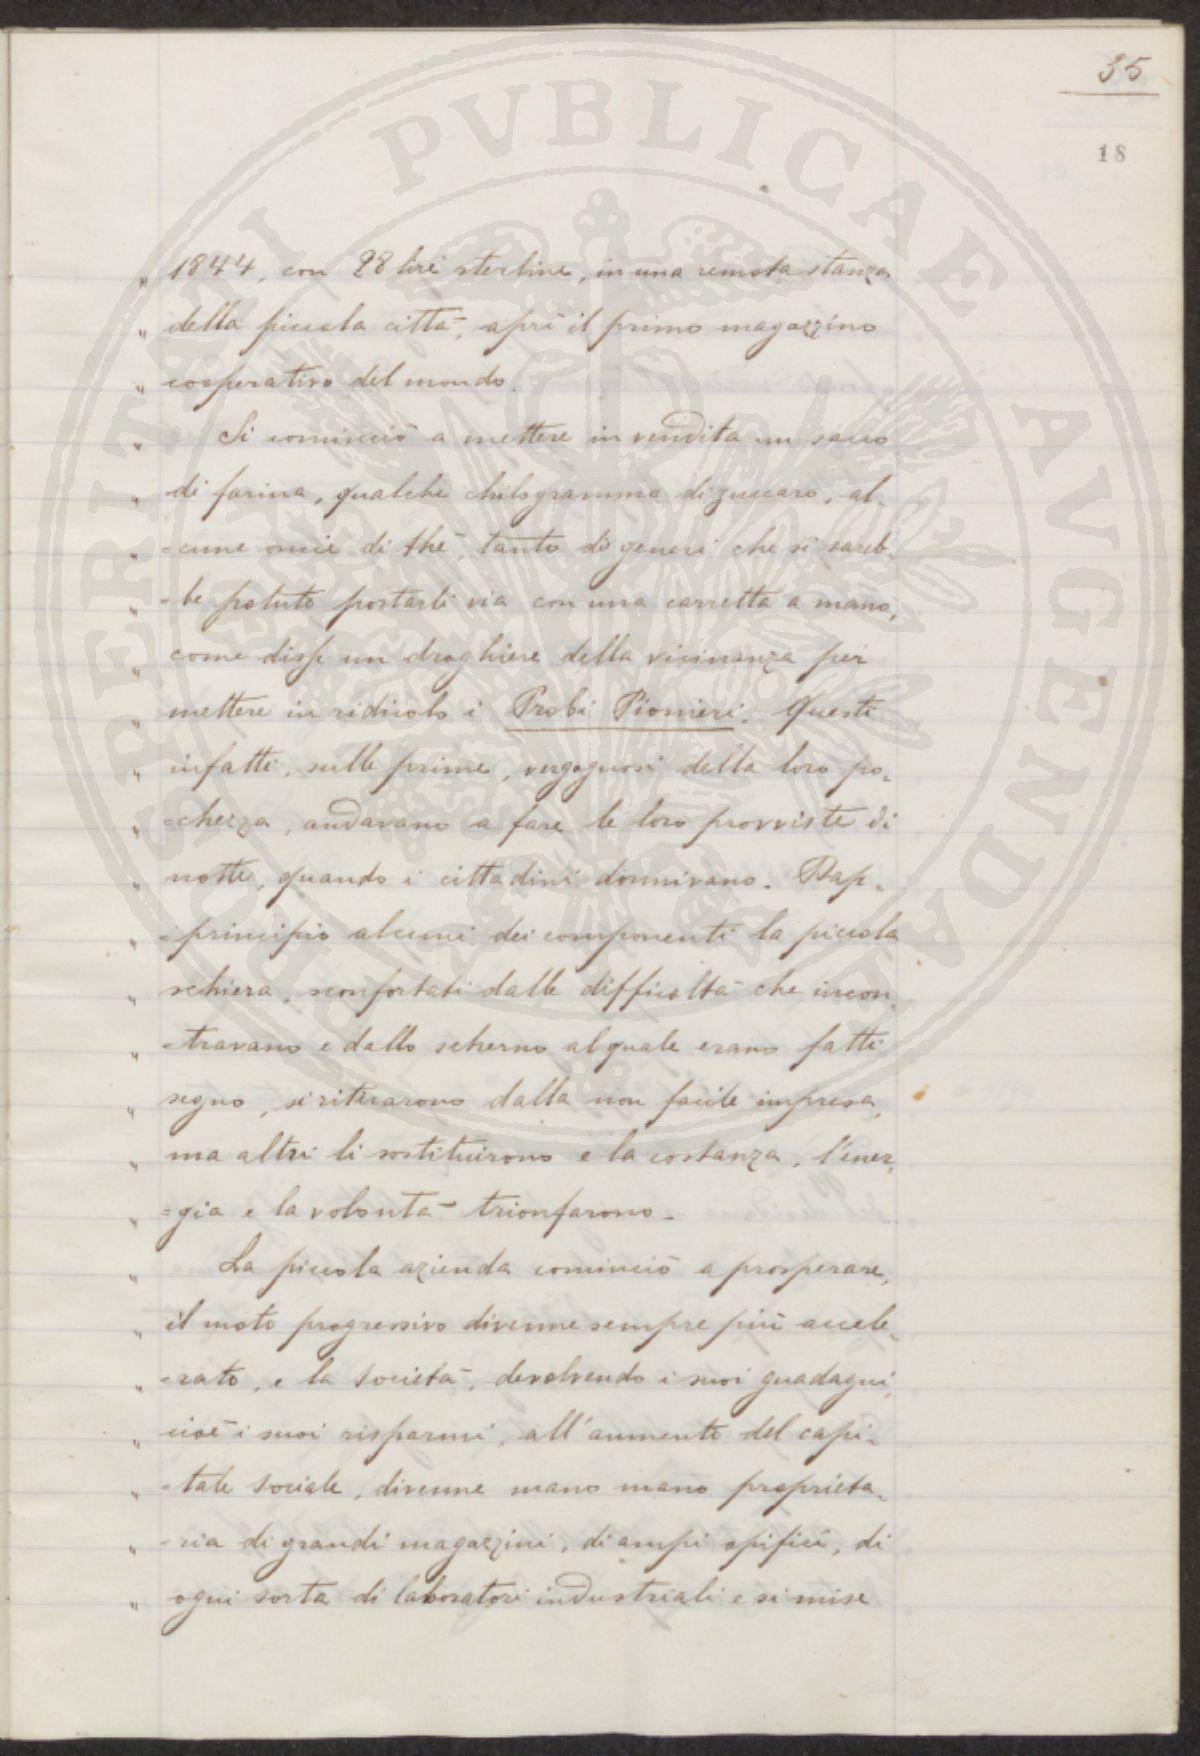 35
18
" 1844, con 28 lire sterline, in una remota stanza
" della piccola città, aprì il primo magazzino
" cooperativo del mondo.
" Si cominciò a mettere in vendita un sacco
" di farina, qualche chilogramma di zuccaro, al-
" -cune oncie di thè, tanto di generi che si sareb-
" -be potuto portarli via con una carretta a mano,
" come disse un droghiere della vicinanza per
" mettere in ridicolo i Probi Pionieri. Questi
" infatti, sulle prime, vergognosi della loro po-
" -chezza, andavano a fare le loro provviste di
" notte, quando i cittadini dormivano. Dap-
" -principio alcuni dei componenti la piccola
" schiera, sconfortati dalle difficoltà che incon-
" -travano e dallo scherno al quale erano fatti
" segno, si ritirarono dalla non facile impresa,
" ma altri li sostituirono e la costanza, l'ener-
" -gia e la volontà trionfarono.
" La piccola azienda cominciò a prosperare,
" il moto progressivo divenne sempre più accele-
" -rato, e la società, devolvendo i suoi guadagni,
" cioè i suoi risparmi, all'aumento del capi-
" -tale sociale, divenne mano mano proprieta-
" -ria di grandi magazzini, di ampi opifici, di
" ogni sorta di laboratori industriali e si mise
PROSPERITATI PVBLICAE AVGENDAE